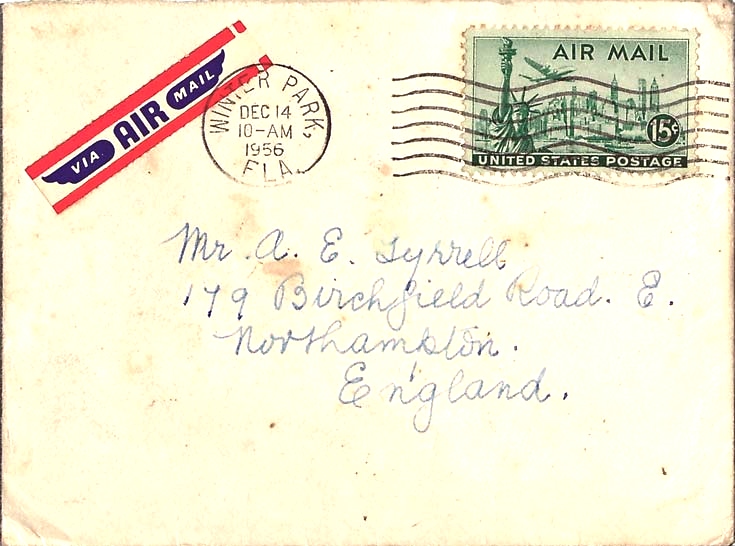 VIA AIR MAIL
WINTER PARK,
DEC 14
10-AM
1956
FLA.
AIR MAIL
15¢
UNITED STATES POSTAGE
Mr. A. E. Tyrrell
179 Birchfield Road. E.
Northampton.
England.